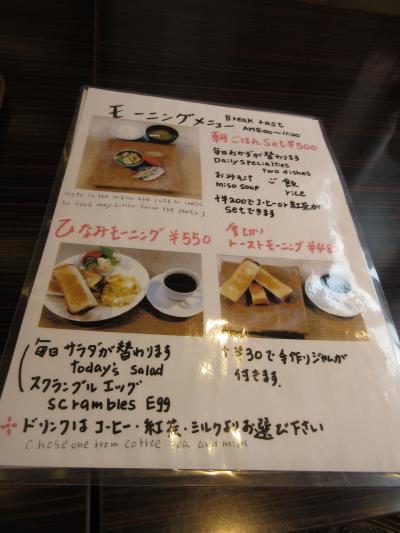 モーニングメニュー
Break fast
AM8:00~11:00
朝ごはんset¥500
毎日おかずが替わります
Daily specialties
two dishes
おみそ汁 ご飯
miso soup rice
+¥200でコーヒーor紅茶が
setできます
in the menu are just an image
so food may differ from the photo
ひなみモーニング ¥550
トーストモーニング¥48
毎日サラダが替わります
today's salad
スクランブルエッグ
scrambles Egg
+¥30で手作りジャムが
付きます.
ドリンクはコーヒー・紅茶・ミルクよりお選び下さい
Choose one from coffee tea and milk